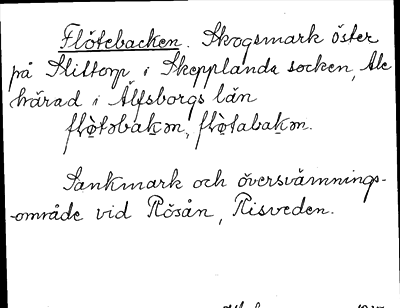 Flötebacken. Skogsmark öster
på Slittorp i Skepplanda socken, Ale
härad i Älfsborgs län
flø̀təbakən, flø̀tabakən.
Sankmark och översvämnings-
-område vid Rösån, Risveden.